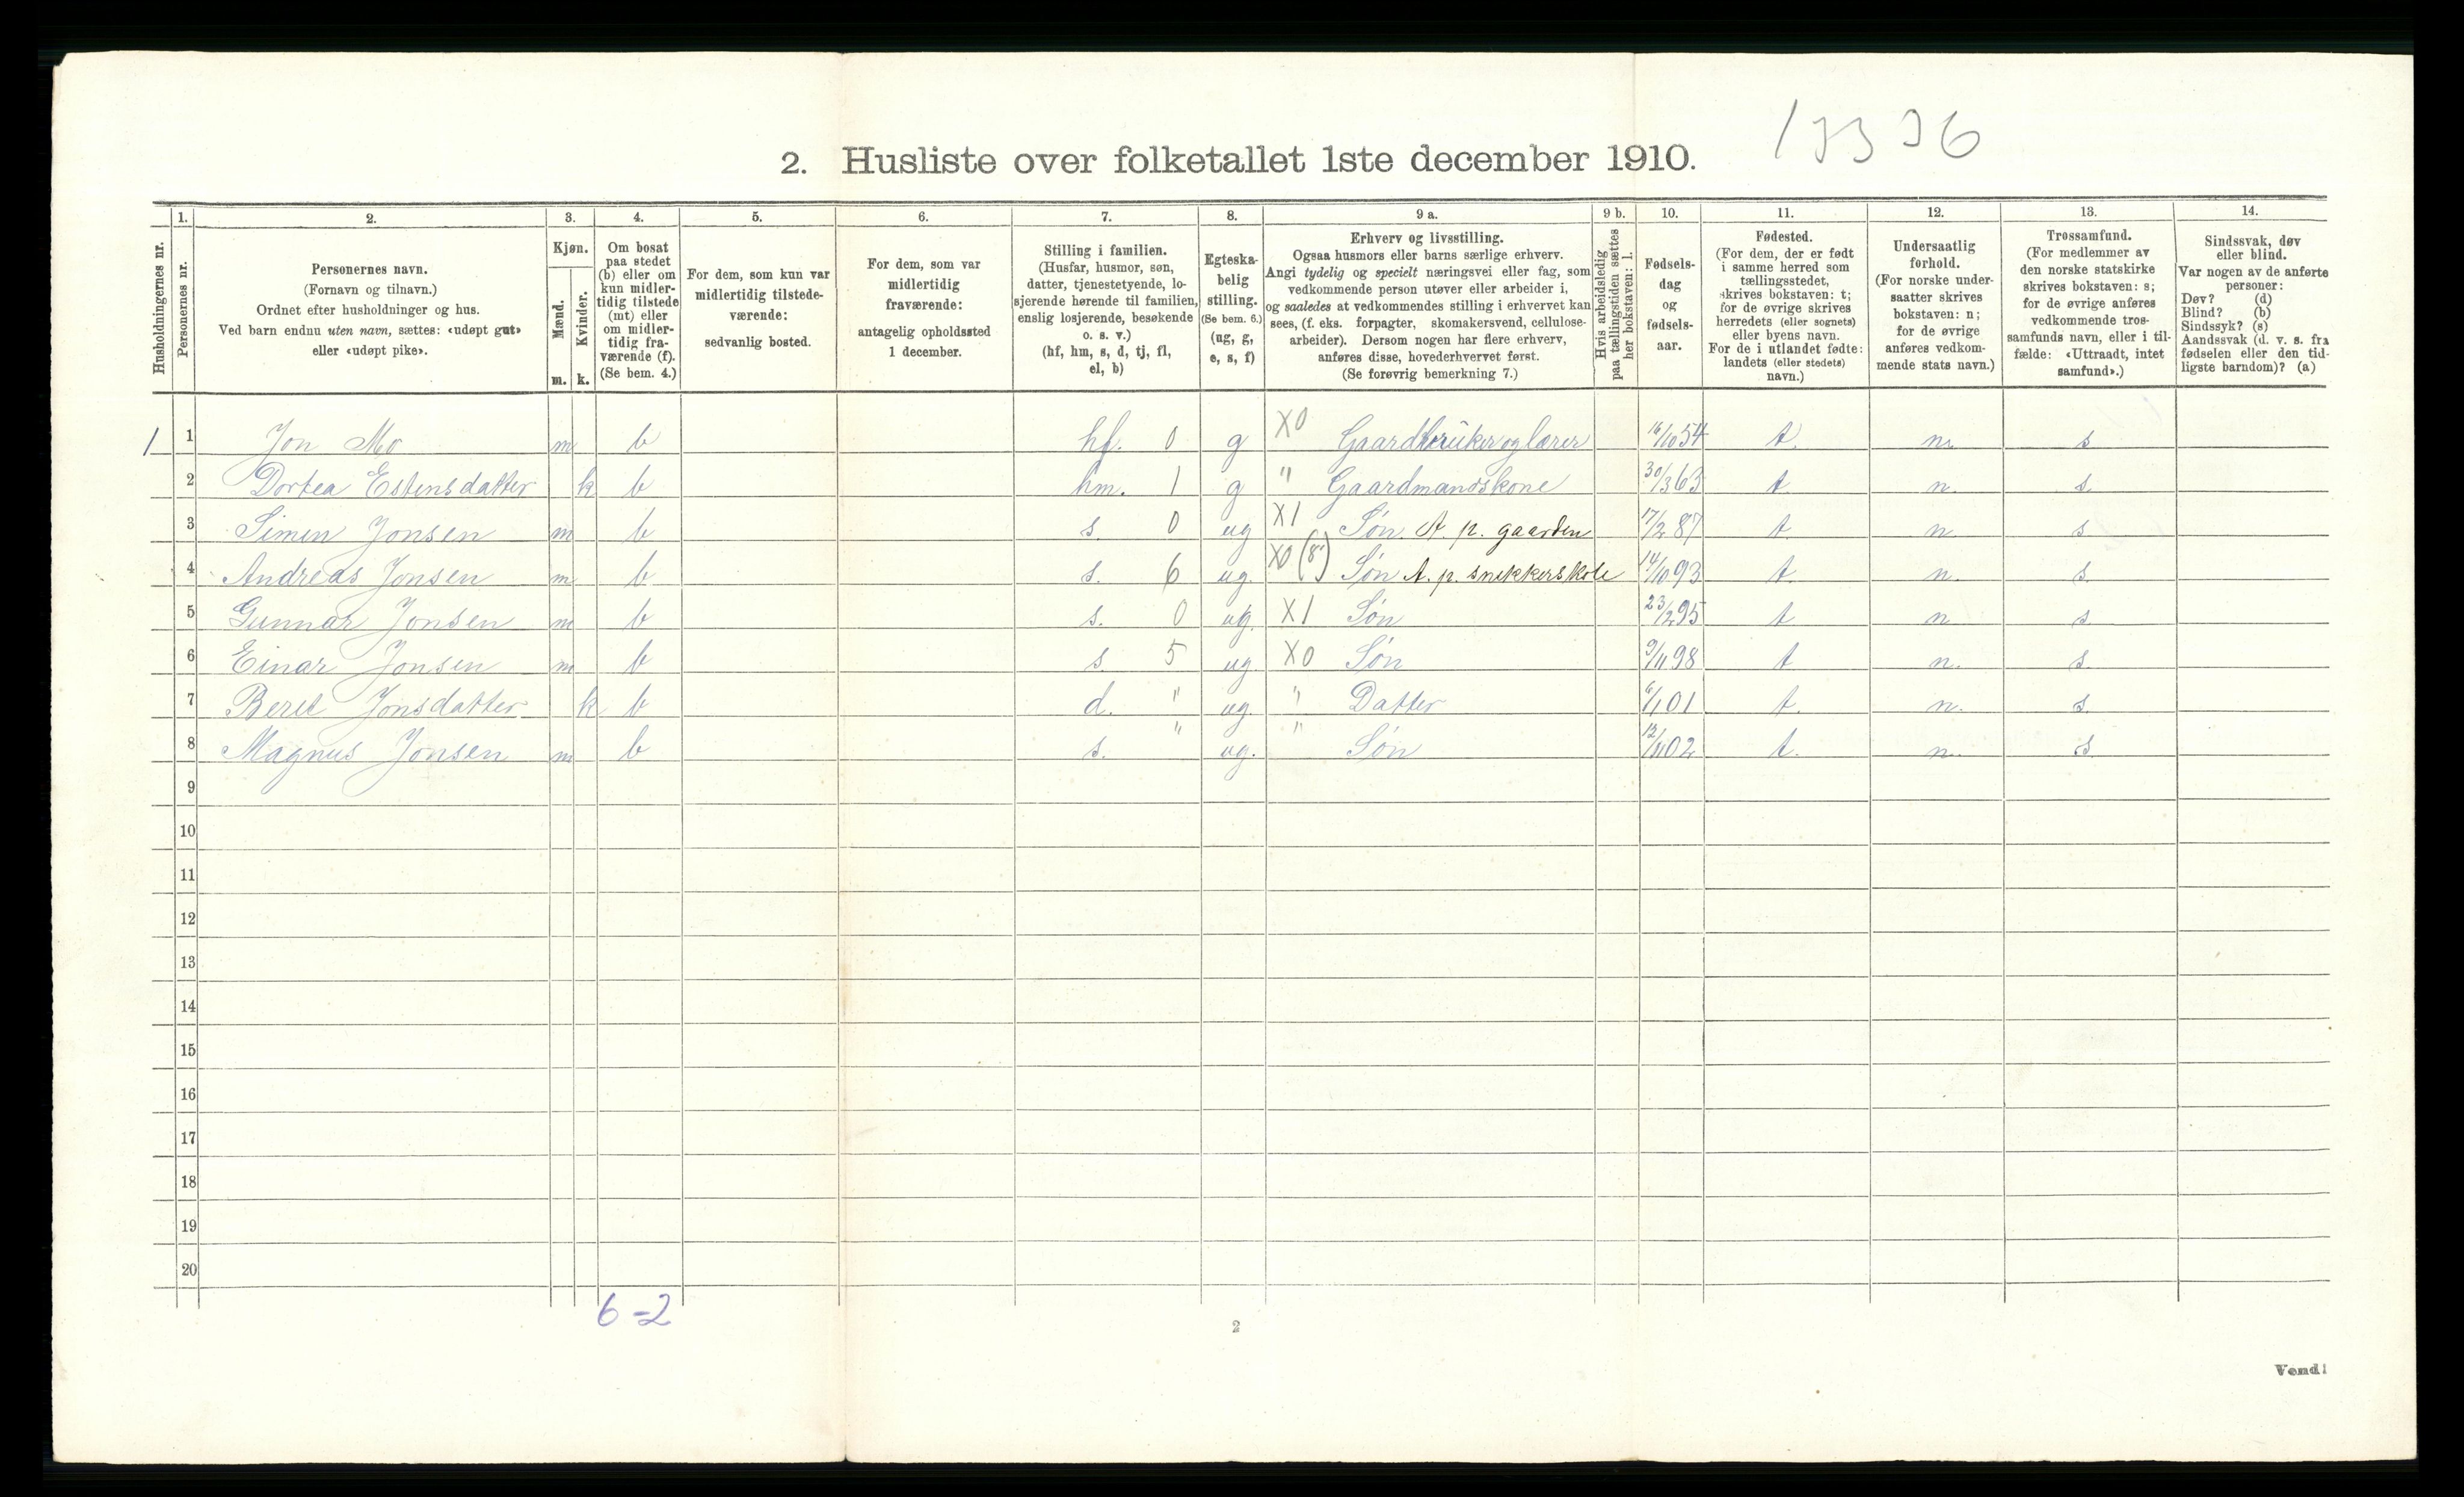 2. Husliste over folketallet 1ste december 1910.
Husholdningernes nr.
1. Personernes nr.
2. Personernes navn.
(Fornavn og tilnavn.)
Ordnet efter husholdninger og hus.
Ved barn endnu uten navn, sættes: «udøpt gut»
eller «udøpt pike».
3. Kjøn.
Mænd. m.
Kvinder. k.
4. Om bosat
paa stedet
(b) eller om
kun midler-
tidig tilstede
(mt) eller
om midler-
tidig fra-
værende (f).
(Se bem. 4.)
5. For dem, som kun var
midlertidig tilstede-
værende:
sedvanlig bosted.
6. For dem, som var
midlertidig
fraværende:
antagelig opholdssted
1 december.
7. Stilling i familien.
(Husfar, husmor, søn,
datter, tjenestetyende, lo-
sjerende hørende til familien,
enslig losjerende, besøkende
o. s. v.)
(hf, hm, s, d, tj, fl,
el, b)
8. Egteska-
belig
stilling.
(Se bem. 6.)
(ug, g,
e, s, f)
9 a. Erhverv og livsstilling.
Ogsaa husmors eller barns særlige erhverv.
Angi tydelig og specielt næringsvei eller fag, som
vedkommende person utøver eller arbeider i,
og saaledes at vedkommendes stilling i erhvervet kan
sees, (f. eks. forpagter, skomakersvend, cellulose-
arbeider). Dersom nogen har flere erhverv,
anføres disse, hovederhvervet først.
(Se forøvrig bemerkning 7.)
9 b. Hvis arbeidsledig
paa tællingstiden sættes
her bokstaven: l.
10. Fødsels-
dag
og
fødsels-
aar.
11. Fødested.
(For dem, der er født
i samme herred som
tællingsstedet,
skrives bokstaven: t;
for de øvrige skrives
herredets (eller sognets)
eller byens navn.
For de i utlandet fødte:
landets (eller stedets)
navn.)
12. Undersaatlig
forhold.
(For norske under-
saatter skrives
bokstaven: n;
for de øvrige
anføres vedkom-
mende stats navn.)
13. Trossamfund.
(For medlemmer av
den norske statskirke
skrives bokstaven: s;
for de øvrige anføres
vedkommende tros-
samfunds navn, eller i til-
fælde: «Uttraadt, intet
samfund».)
14. Sindssvak, døv
eller blind.
Var nogen av de anførte
personer:
Døv? (d)
Blind? (b)
Sindssyk? (s)
Aandssvak (d. v. s. fra
fødselen eller den tid-
ligste barndom)? (a)
1 1 Jon Mo m b hf. 0 g X0 Gaardbruker og lærer 16/10 54 t. n. s
2 Dortea Estensdatter k b hm. 1 g " Gaardmandskone 30/3 63 t. n. s.
3 Simen Jonsen m b s. 0 ug X1 Søn. A. p. gaarden 17/2 87 t. n. s
4 Andreas Jonsen m b s. 6 ug. X0 (8) Søn A. p. snekkerskole 14/10 93 t. n. s.
5 Gunnar Jonsen m b s. 0 ug. X1 Søn 23/2 95 t n s.
6 Einar Jonsen m b s 5 ug. X0 Søn 9/11 98 t n. s.
7 Beret Jonsdatter k b d. " ug. " Datter 6/1 01 t. n. s.
8 Magnus Jonsen m b s. " ug. " Søn 12/11 02 t. n. s
9
10
11
12
13
14
15
16
17
18
19
20
6-2
2
Vend!